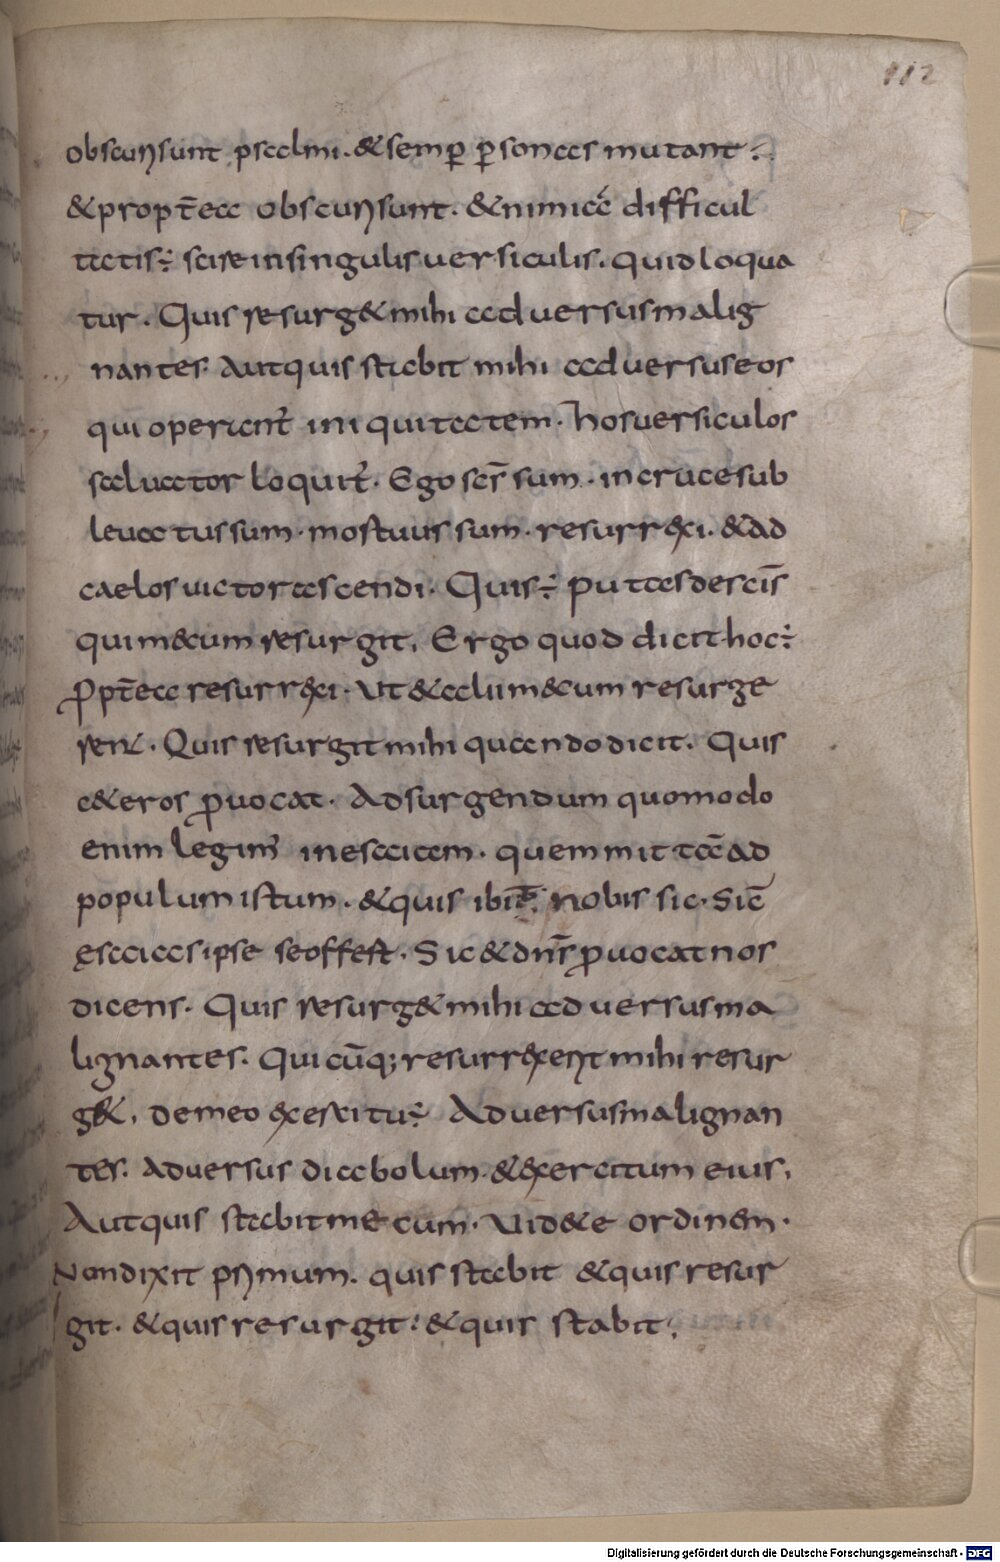 112
obscuri sunt psalmi. & semp̄ p̄sonas mutant.
& propt̄ea obscuri sunt. & nimiae difficul
tatis; scire in singulis uersiculis. quid loqua
tur. Quis resurg& mihi aduersus malig
nantes. Aut quis stabit mihi aduersus eos
qui operant̄ iniquitatem. hos uersiculos
saluator loquit̄. Ego scs̄ sum. in cruce sub
leuatus sum. mortuus sum. resurrexi. & ad
caelos uictor ascendi. Quis; putas de scīs
qui mecum resurgit. Ergo quod dicit hoc;
ꝓpt̄ea resurrexi. Ut & alii mecum resurge
rent. Quis resurgit mihi quando dicit. Quis
c&eros ꝓuocat. Adsurgendum quomodo
enim legim̄ in esaiam. quem mittā ad
populum istum. & quis ibit nobis sic. Sic̄
esaias ipse se offert. Sic & dns̄ ꝓuocat nos
dicens. Quis resurg& mihi aduersus ma
lignantes. Quicūq; resurrexerit mihi resur
g&. de meo exercitu; Aduersus malignan
tes. Aduersus diabolum & exercitum eius.
Aut quis stabit mecum. Uid&e ordinem.
Non dixit primum. quis stabit & quis resur
git. & quis resurgit. & quis stabit;
Digitalisierung gefördert durch die Deutsche Forschungsgemeinschaft - DFG